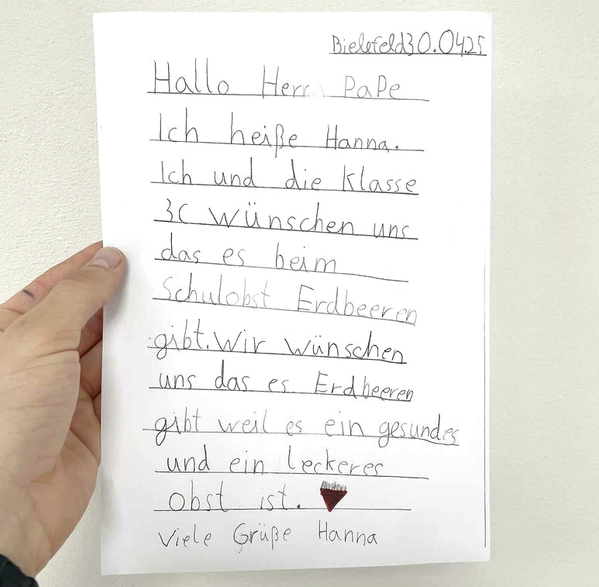 Bielefeld 30.04.25
Hallo Herr Pape
Ich heiße Hanna.
Ich und die Klasse
3c wünschen uns
das es beim
Schulobst Erdbeeren
gibt. Wir wünschen
uns das es Erdbeeren
gibt weil es ein gesundes
und ein leckeres
obst ist.
Viele Grüße Hanna